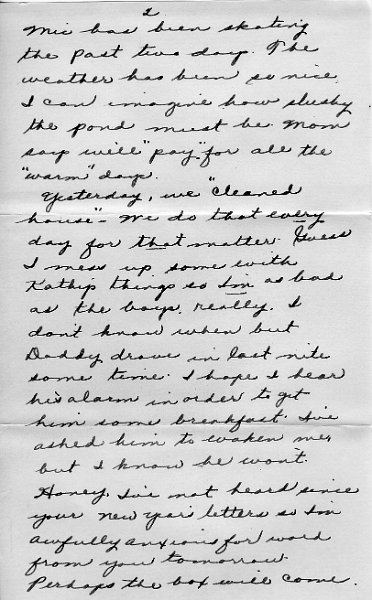 2
Mic has been skating
the past two days. The
weather has been so nice
I can imagine how slushy
the pond must be. Mom
says we'll "pay" for all the
"warm" days.
Yesterday, we "cleaned
house" - We do that every
day for that matter. Guess
I mess up some with
Kathy's things so I'm as bad
as the boys, really. I
don't know when but
Daddy drove in last nite
some time. I hope I hear
his alarm in order to get
him some breakfast. I've
asked him to waken me,
but I know he wont.
Honey, I've not heard since
your New Year letters so I'm
awfully anxious for word
from you tomorrow.
Perhaps the box will come.